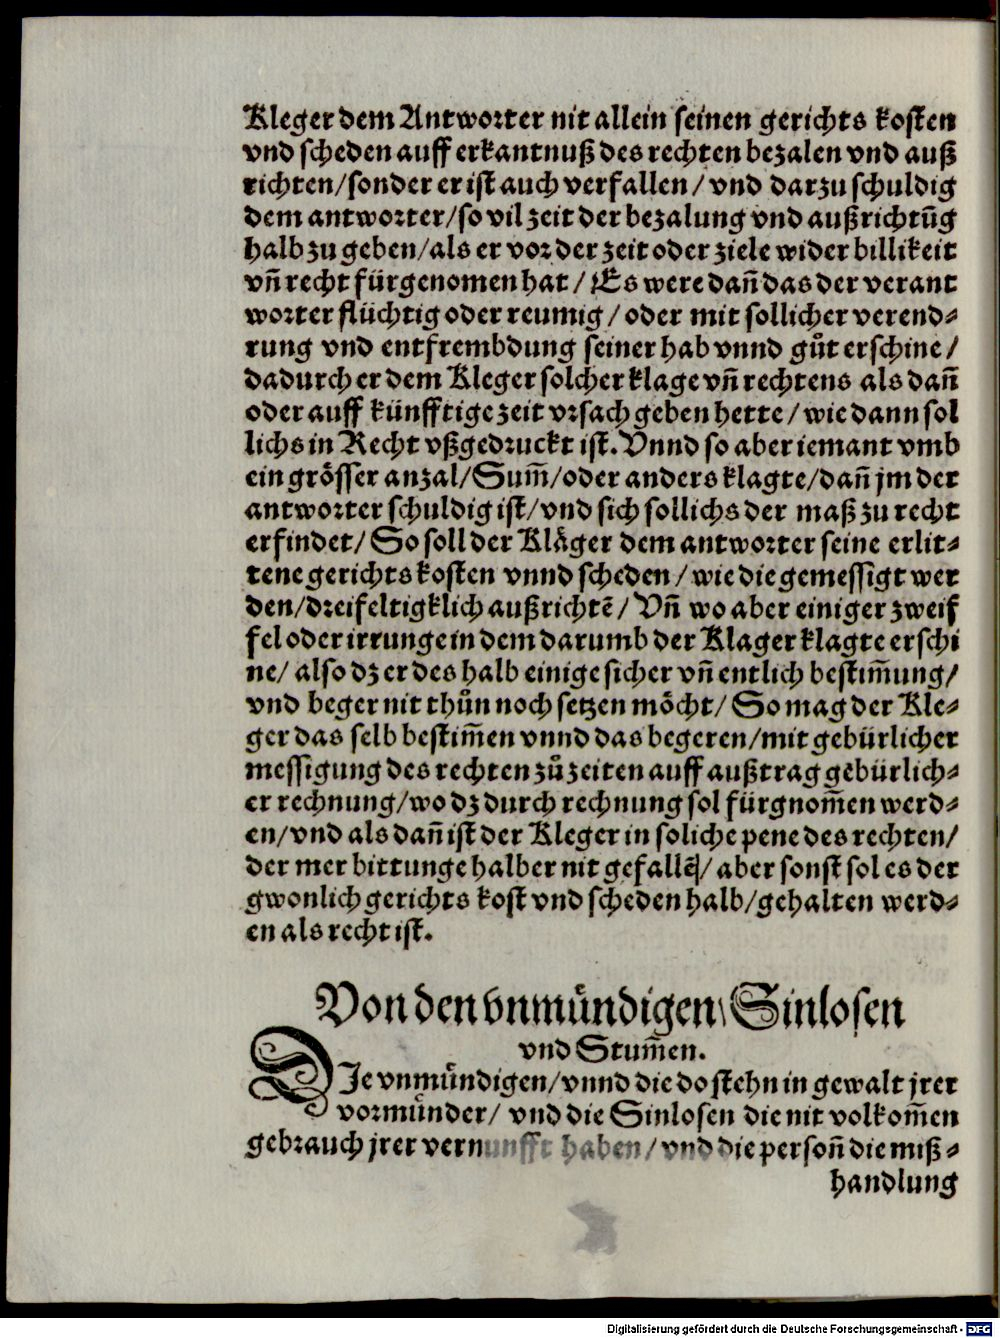 Kleger dem Antworter nit allein seinen gerichts kosten
vnd scheden auff erkantnuß des rechten bezalen vnd auß
richten/sonder er ist auch verfallen/ vnd darzu schuldig
dem antworter/so vil zeit der bezalung vnd außrichtūg
halb zu geben/als er vor der zeit oder ziele wider billikeit
vn̄ recht fürgenomen hat / Es were dan̄ das der verant
worter flüchtig oder reumig / oder mit sollicher verend⸗
rung vnd entfrembdung seiner hab vnnd gůt erschine /
dadurch er dem Kleger solcher klage vn̄ rechtens als dan̄
oder auff künfftige zeit vrsach geben hette / wie dann sol
lichs in Recht vßgedruckt ist. Vnnd so aber iemant vmb
ein grösser anzal/Sum̄/oder anders klagte/dan̄ jm der
antworter schuldig ist/vnd sich sollichs der maß zu recht
erfindet/ So soll der Kläger dem antworter seine erlit⸗
tene gerichts kosten vnnd scheden / wie die gemessigt wer
den/dreifeltigklich außrichtē / Vn̄ wo aber einiger zweif
fel oder irrunge in dem darumb der Klager klagte erschi
ne/ also dz er des halb einige sicher vn̄ entlich bestim̄ung/
vnd beger nit thůn noch setzen möcht/ So mag der Kle⸗
ger das selb bestim̄en vnnd das begeren/mit gebürlicher
messigung des rechten zů zeiten auff außtrag gebürlich⸗
er rechnung/wo dz durch rechnung sol fürgnom̄en werd⸗
en/vnd als dan̄ ist der Kleger in soliche pene des rechten/
der mer bittunge halber nit gefallē/ aber sonst sol es der
gwonlich gerichts kost vnd scheden halb/gehalten werd⸗
en als recht ist.
Von den vnmündigen/ Sinlosen
vnd Stum̄en.
DIe vnmündigen/vnnd die do stehn in gewalt jrer
vormünder/ vnd die Sinlosen die nit volkom̄en
gebrauch jrer vernunfft haben/vnd die person̄ die miß⸗
handlung
Digitalisierung gefördert durch die Deutsche Forschungsgemeinschaft - DFG